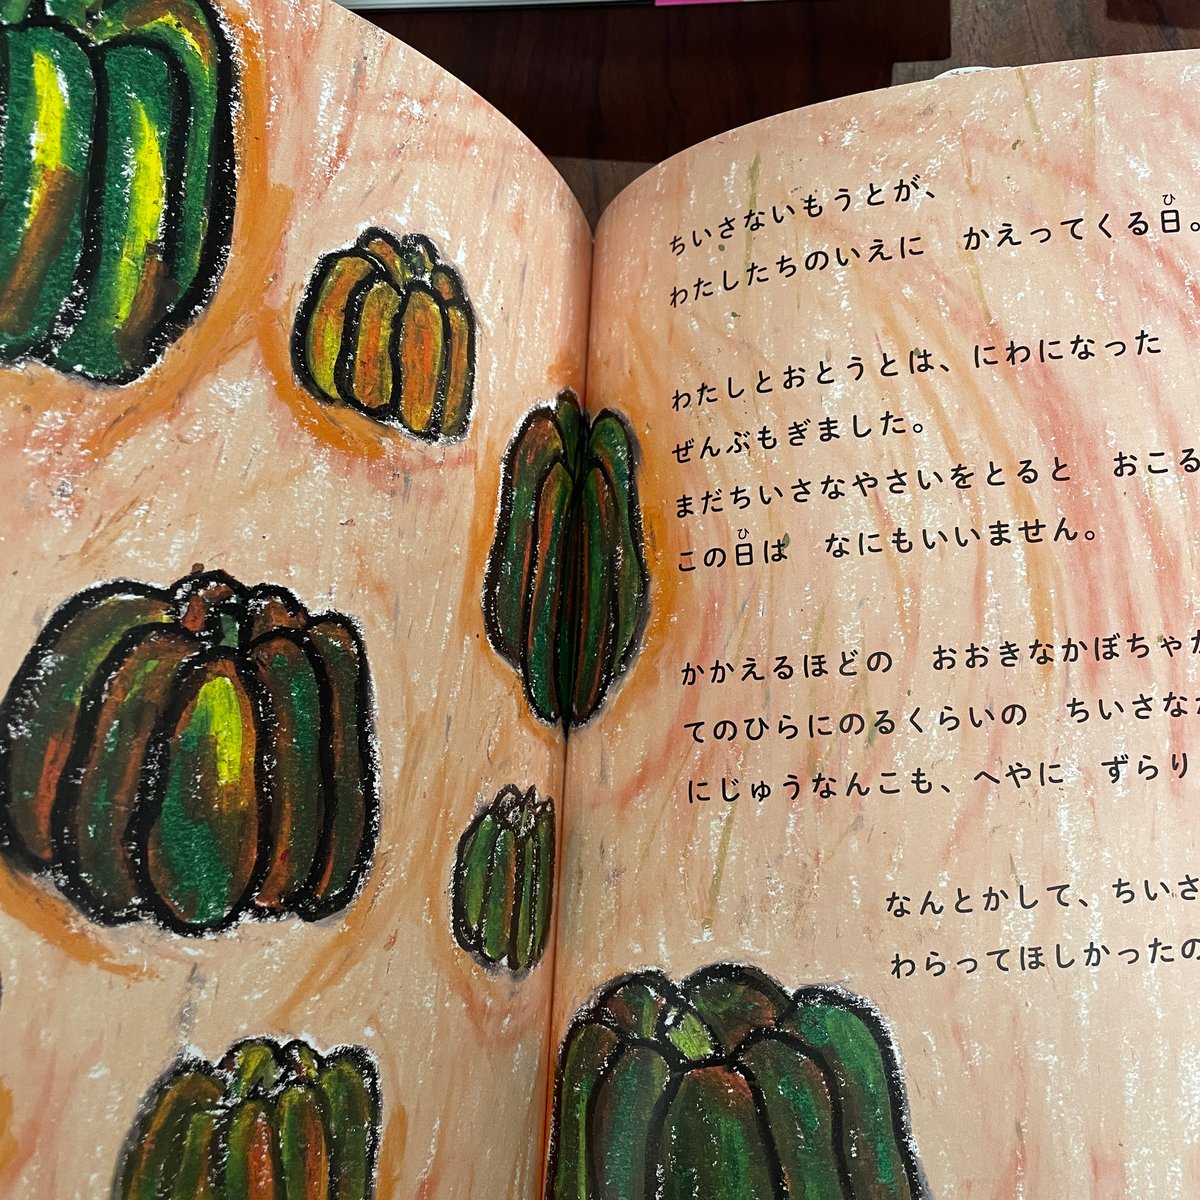 ちいさないもうとが、
わたしたちのいえに　かえってくる日。
わたしとおとうとは、にわになった
ぜんぶもぎました。
まだちいさなやさいをとると　おこる
この日は　なにもいいません。
かかえるほどの　おおきなかぼちゃか
てのひらにのるくらいの　ちいさな
にじゅうなんこも、へやに　ずらり
なんとかして、ちいさ
わらってほしかったの